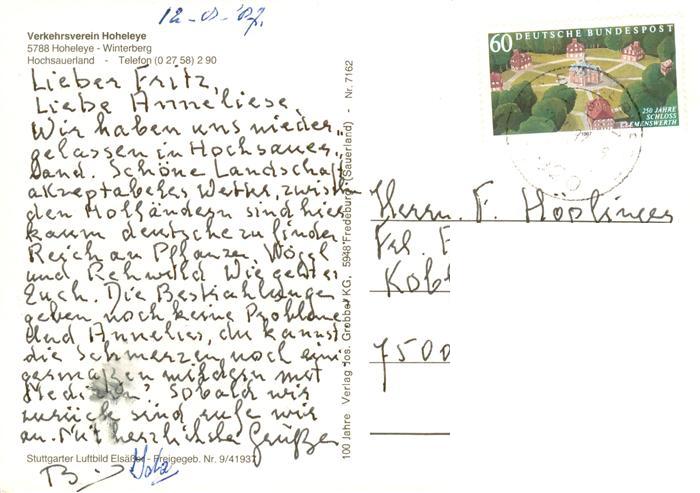 12-8-'87.
Verkehrsverein Hoheleye
5788 Hoheleye - Winterberg
Hochsauerland - Telefon (0 27 58) 2 90
Lieber Fritz,
Liebe Anneliese,
Wir haben uns nieder-
gelassen in Hochsauer-
land. Schöne Landschaft
akzeptabeles Wetter, zwischen
den Holländern sind hier
kaum deutsche zu finden
Reich an Pflanzen, Vögel
und Rehwild. Wie geht es
Euch. Die Bestrahlungen
geben noch keine Probleme
Und Annelies, du kannst
die Schmerzen noch eini
germaßen mildern mit
Medizin? Sobald wir
zurück sind rufe wir
an. Mit herzlichste Grüßen
Stuttgarter Luftbild Elsäßer - Freigegeb. Nr. 9/41937
100 Jahre Verlag Jos. Grobbel KG, 5948 Fredeburg (Sauerland) - Nr. 7162
60 DEUTSCHE BUNDESPOST
250 JAHRE
SCHLOSS
CLEMENSWERTH
1987
Herrn. F.
Kobl
7500